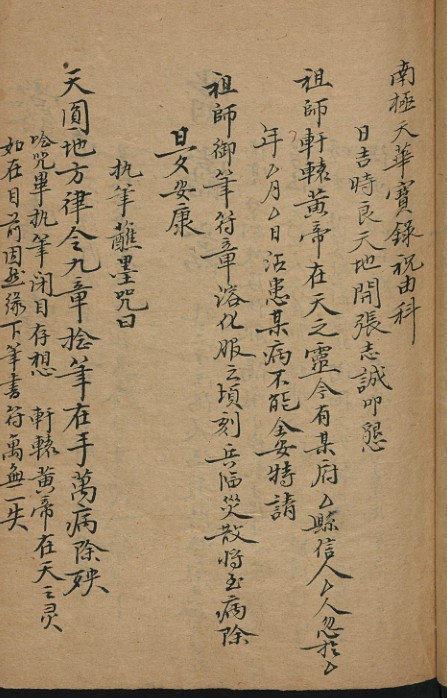 南極天華寶籙祝由科
日吉時良天地開張志誠叩懇
祖師軒轅黃帝在天之靈今有某府厶縣信人厶人忽於厶
年厶月厶日沾患某病不能全安特請
祖師御筆符章溶化服之頃刻兵降災散將至病除
旦夕安康
执筆蘸墨咒曰
天圓地方律令九章捻筆在手萬病除殃
唸咒畢执筆闭目存想 軒轅黃帝在天之灵
如在目前因然後下筆書符萬無一失